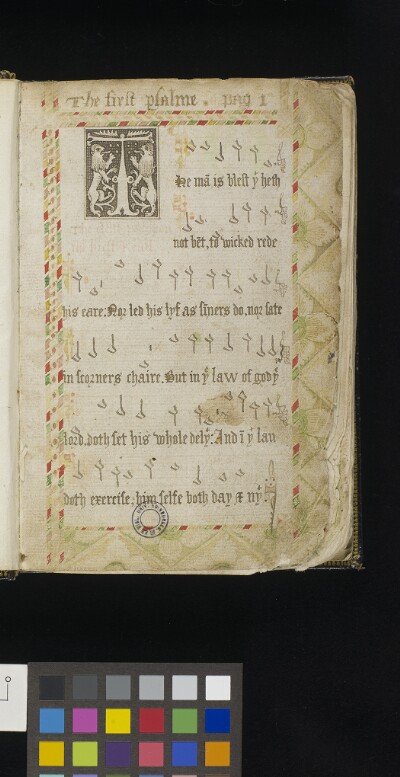 The first psalme. pag 1
The mā is blest yͭ heth
not bēt, to wicked rede
his eare: Nor led his lyf as siners do, nor sate
in scorners chaire. But in yͤ law of god yͤ
lord, doth set his whole dely: And ī yͭ lau
doth exercise: him selfe both day & ny.